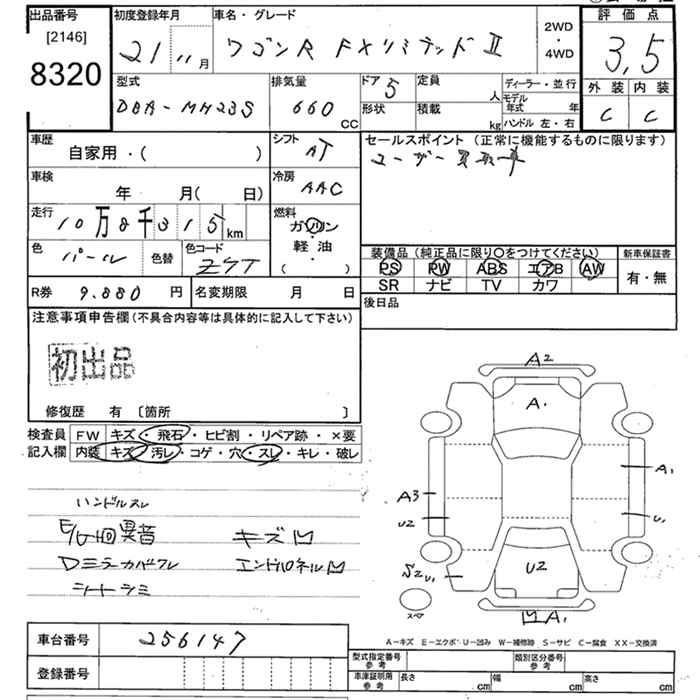 出品番号
[2146]
8320
初度登録年月
21 11 月
車名・グレード
ワゴンR FXリミテッドⅡ
2WD
・
4WD
評価点
3,5
外装 内装
C C
型式
DBA-MH23S
排気量
660
CC
ドア
5
形状
定員
人
積載
kg
ディーラー・並行
モデル
年式 年
ハンドル 左・右
車歴
自家用・( )
シフト
AT
車検
年 月( 日)
冷房
AAC
走行
10万8千315km
燃料
ガソリン
軽油
( )
色
パール
色替
色コード
Z7T
セールスポイント (正常に機能するものに限ります)
ユーザー買取車
装備品 (純正品に限り○をつけてください)
PS PW ABS エアB AW
SR ナビ TV カワ
新車保証書
有・無
R券 9.880 円
名変期限 月 日
後日品
注意事項申告欄(不具合内容等は具体的に記入して下さい)
初出品
修復歴 有 [箇所 ]
検査員
記入欄
FW キズ・飛石・ヒビ割・リペア跡・×要
内装 キズ・汚レ・コゲ・穴・スレ・キレ・破レ
ハンドルスレ
E/G回異音 キズ凹
Dミラーカバーワレ エンドパネル凹
シートシミ
A2
A1
A1
U1
A3
U2
U2
S2U1
スペア
凹A1
A-キズ E-エクボ U-凹み W-補修跡 S-サビ C-腐食 XX-交換済
車台番号 256147
登録番号
型式指定番号
参考
類別区分番号
参考
車庫証明用
参考
長さ cm
幅 cm
高さ cm